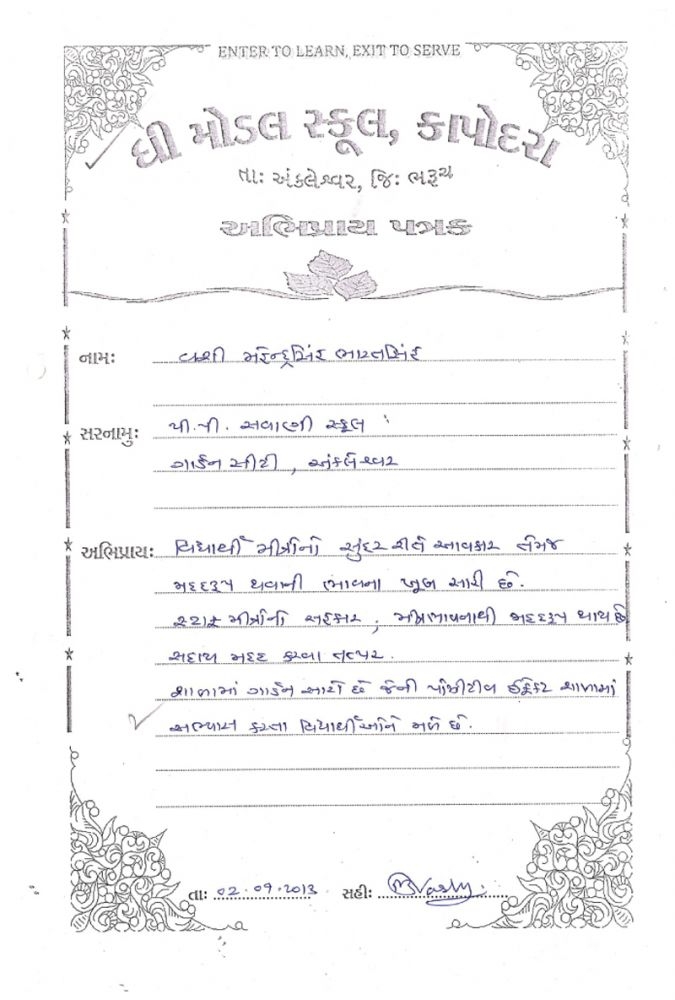 ENTER TO LEARN, EXIT TO SERVE
ધી મોડલ સ્કૂલ, કાપોદરા
તાઃ અંકલેશ્વર, જિઃ ભરૂચ
અભિપ્રાય પત્રક
નામઃ વાશી મહેન્દ્રસિંહ ભારતસિંહ
સરનામુઃ પી.પી. સવાણી સ્કૂલ
ગાર્ડન સીટી, અંકલેશ્વર
અભિપ્રાયઃ વિદ્યાર્થી મીત્રોનો સુંદર રીતે આવકાર તેમજ
મદદરૂપ થવાની ભાવના ખૂબ સારી છે.
સ્ટાફ મીત્રોનો સહકાર, મીત્રભાવનાથી મદદરૂપ થાય છે
સદાય મદદ કરવા તત્પર.
શાળામાં ગાર્ડન સારો છે જેની પોઝીટીવ ઈફેક્ટ શાળામાં
અભ્યાસ કરતા વિદ્યાર્થીઓને મળે છે.
તાઃ 02.09.2013 સહીઃ